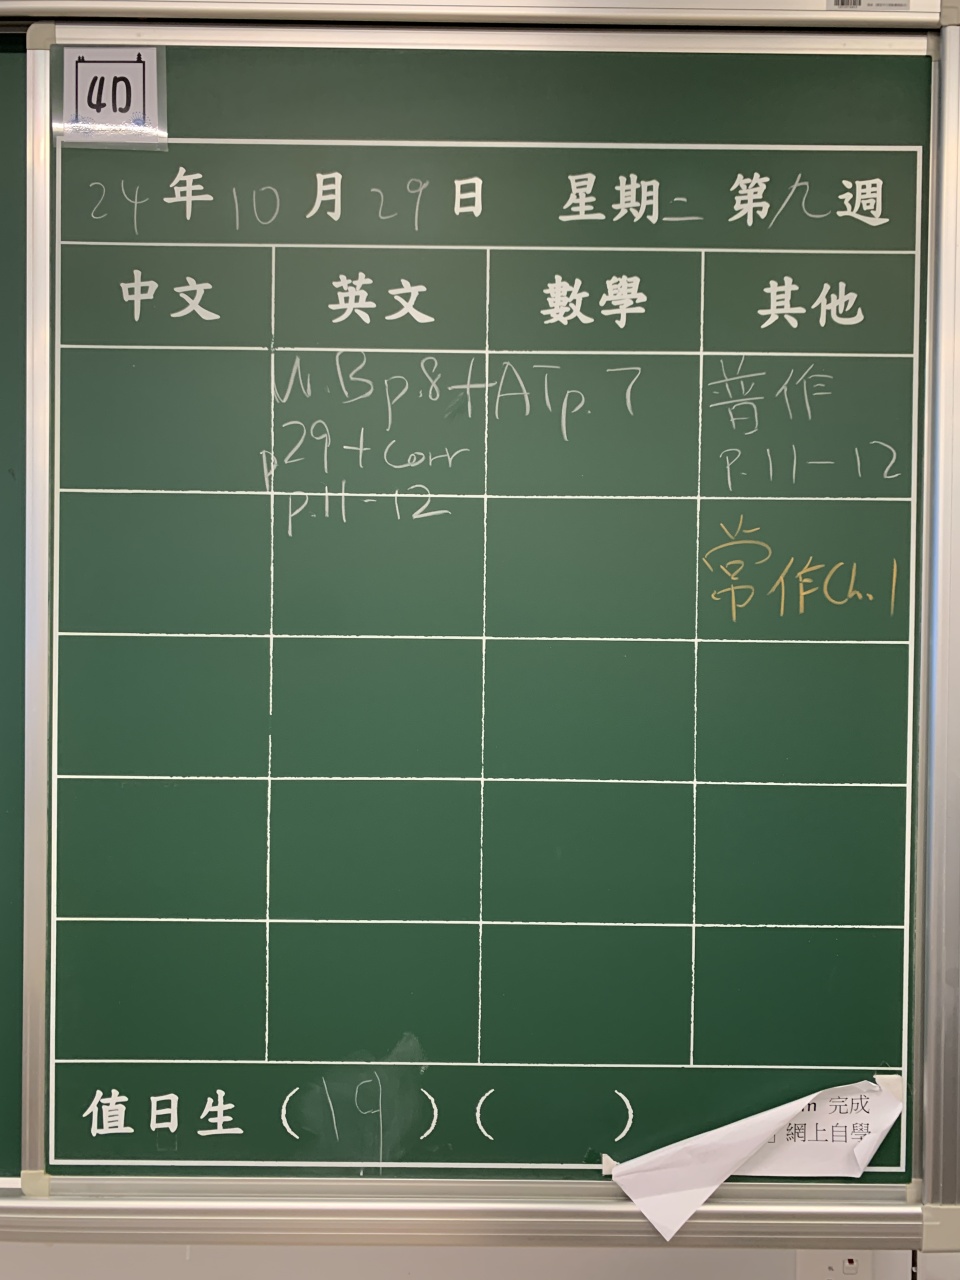 4D
24年10月29日 星期二 第九週
中文 英文 數學 其他
W.B p.8+
p29+corr
p.11-12
ATp.7
普作
p.11-12
常作Ch.1
值日生 (19) ( )
完成
」網上自學